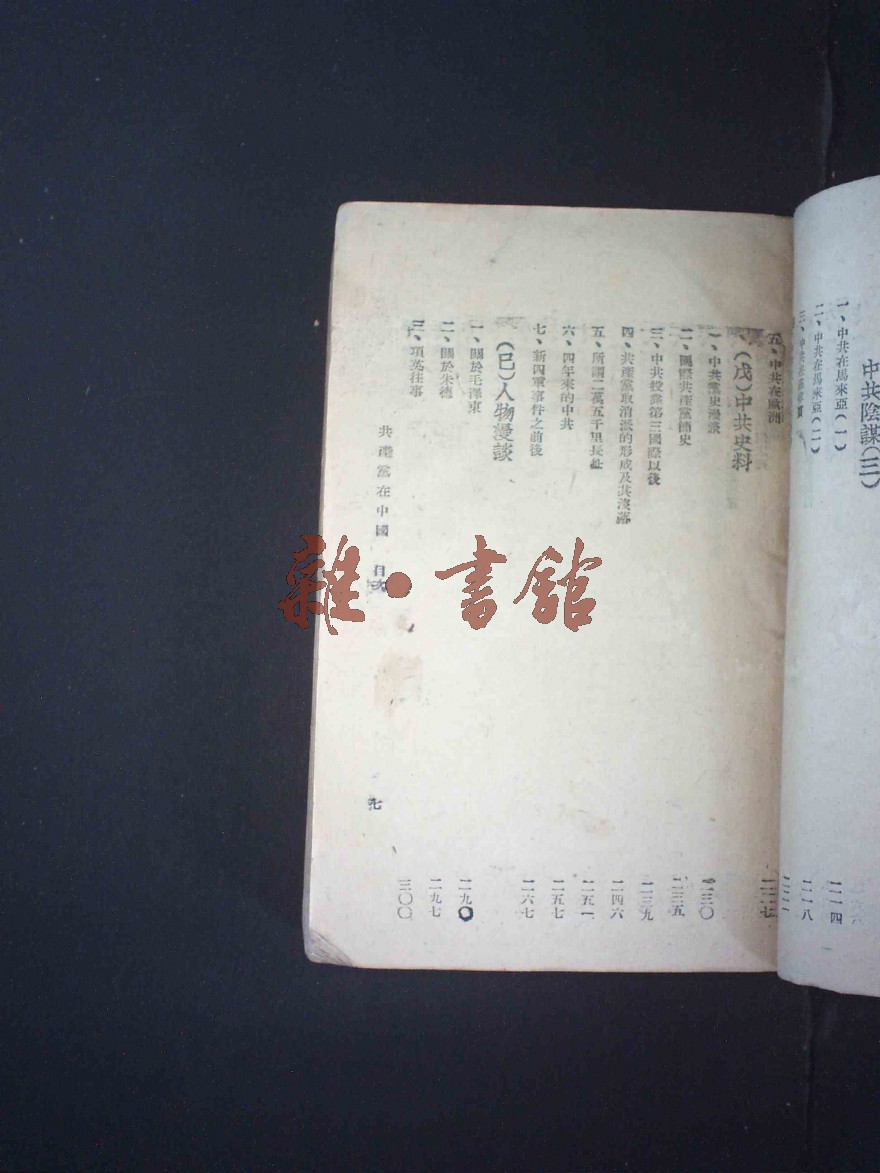 中共陰謀(三)
一、中共在馬來亞(一) 二一四
二、中共在馬來亞(二) 二一八
三、中共在
五、中共在歐洲 二二七
(戊)中共史料
一、中共黨史漫談 二三〇
二、國際共產黨簡史 二三五
三、中共投靠第三國際以後 二三九
四、共產黨取消派的形成及其沒落 二四六
五、所謂二萬五千里長征 二五一
六、四年來的中共 二五七
七、新四軍事件之前後 二六七
(巳)人物漫談
一、關於毛澤東 二九〇
二、關於朱德 二九七
三、項英往事 三〇〇
共產黨在中國 目次
七
雜·書館